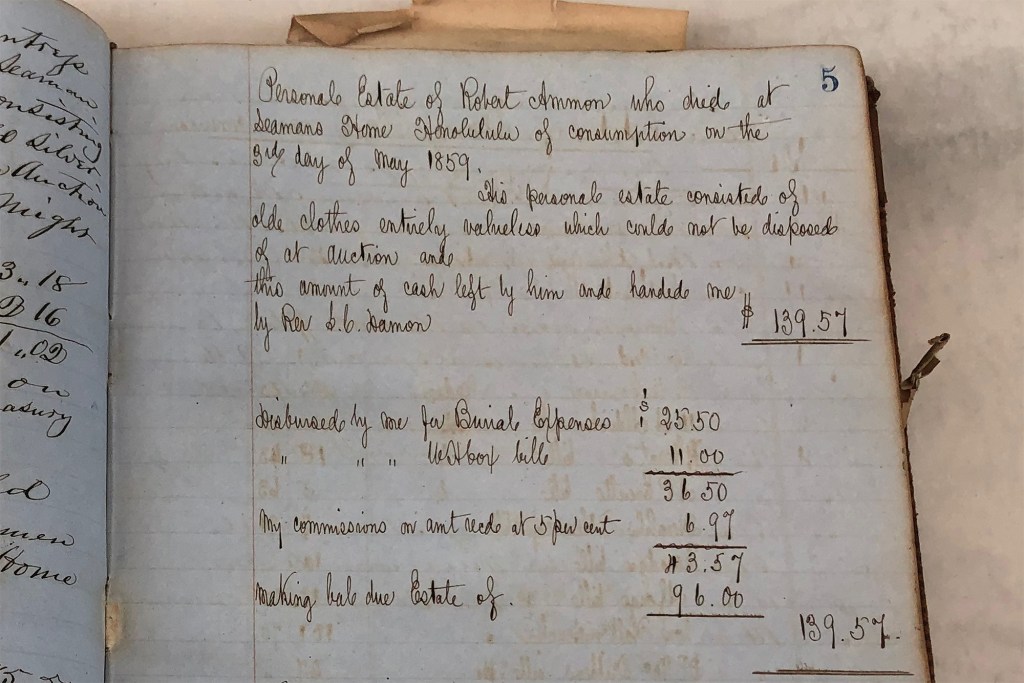 ntrys
Seaman
onsisting
d Silver
Auction
Might
3 " 18
16
1 " 02
on
asury
men
Home
5
Personal Estate of Robert Ammon who died at
Seamans Home Honolulu of consumption on the
3rd day of May 1859.
His personal estate consisted of
old clothes entirely valueless which could not be disposed
of at auction and
this amount of cash left by him and handed me
by Rev S. C. Damon $ 139.57
Disbursed by me for Burial Expenses $ 25.50
" " " bill 11.00
36 50
My commissions on amt recd at 5 per cent 6.97
43.57
Making bal due Estate of. 96.00
139.57.